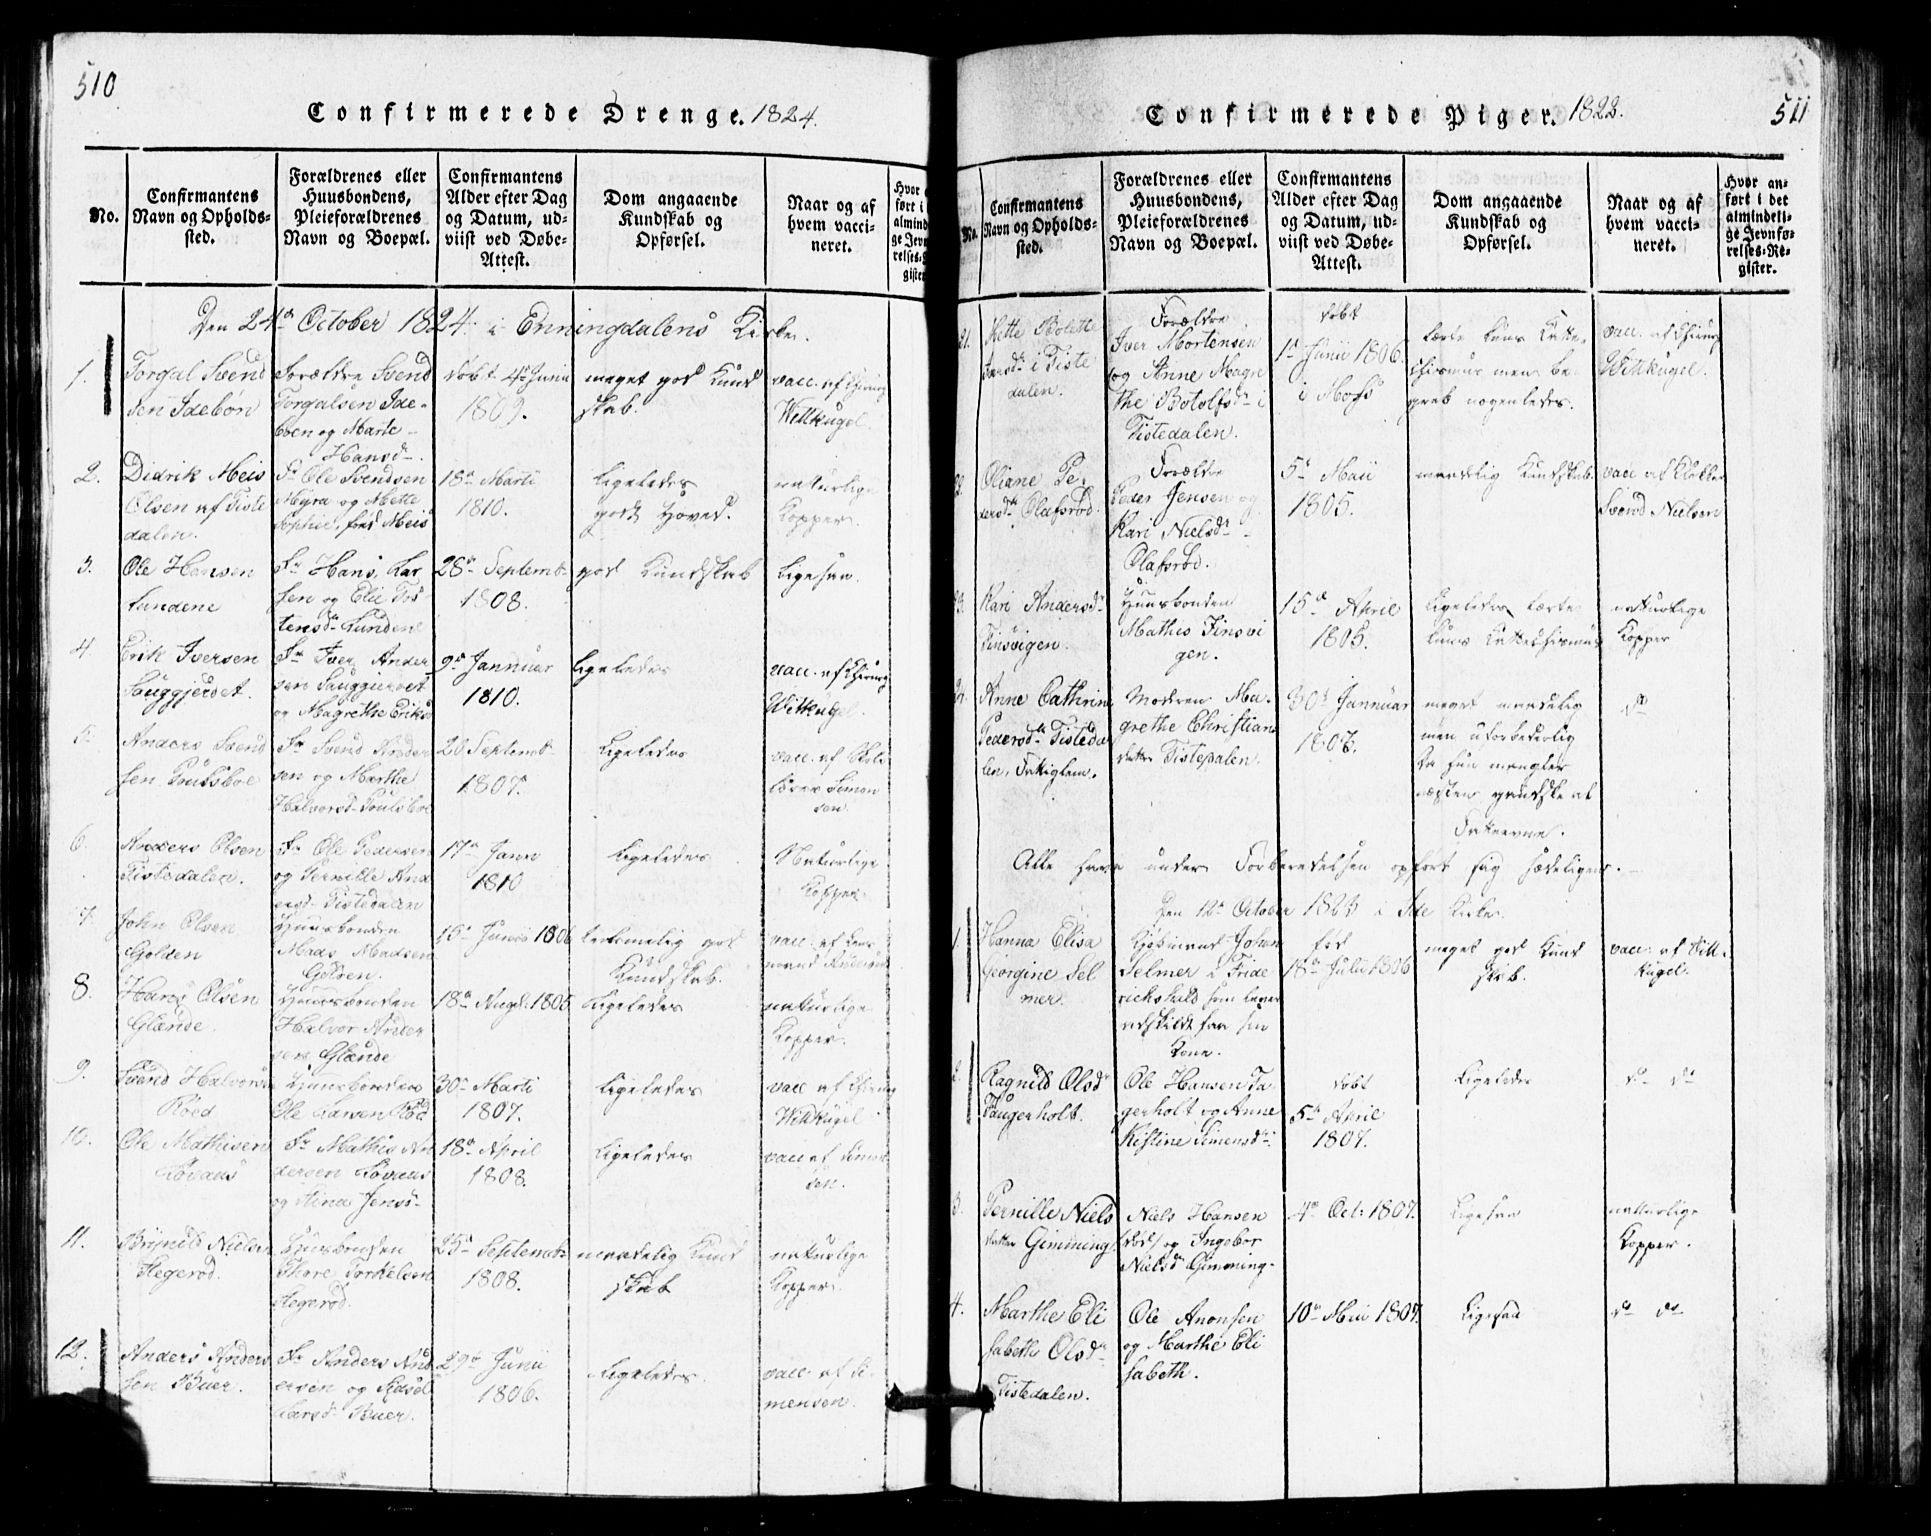 510
Confirmerede Drenge. 1824.
No.
Confirmantens
Navn og Opholds-
sted.
Forældrenes eller
Huusbondens,
Pleieforældrenes
Navn og Boepæl.
Confirmantens
Alder efter Dag
og Datum, ud-
viist ved Døbe-
Attest.
Dom angaaende
Kundskab og
Opførsel.
Naar og af
hvem vacci-
neret.
Hvor
ført i
almind
ge Jevn
relses-
gister
Den 24de October 1824 i Enningdalens Kirke.
1.
Torgal Svend
sen Idebøn
Forældre Svend
Torgalsen Ide-
böen og Marte
Hansd.
döbt 4de Junii
1809.
meget god Kund
skab.
vacc. af Chirurg
Wittkugel.
2.
Didrik Meis
Olsen af Tiste
dalen.
Fr Ole Svendsen
Myra og Mette
Sophie, föd Meis
18de Marti
1810.
ligeledes
godt Hoved.
naturlige
Kopper
3.
Ole Hansen
Lundene
Fr Hans Lar
sen og Elie Tos
tensdr Lundene
28de Septemb.
1808.
god Kundskab
ligesaa.
4
Erik Iversen
Sauggjerdet.
Fr Iver Ander
sen Sauggierdet
og Magrethe Eriks
9de Januar
1810.
ligeledes
vacc. af Chirurg
Wittkugel.
5.
Anders Svend
sen Poulsboe
Fr Svend Ander
sen og Marthe
Halvorsd. Poulsboe
20 Septemb.
1807.
ligeledes
vacc. af Skole
lærer Simon
sen.
6.
Anders Olsen
Tistedalen.
Fr Ole Pedersen
og Pernille And
ersd. Tistedalen
17de Janu
1810
ligeledes
Naturlige
Kopper.
7.
John Olsen
Golden
Huusbonden
Mads Madsen
Golden.
15de Junii 1806
temmelig god
Kundskab.
vacc. af Lens
mand
8.
Hans Olsen
Glænde.
Huusbonden
Halvor Ander
sen Glænde
18de Augl. 1805
ligeledes
naturlige
Kopper.
9.
Svend Halvors
Röed
Huusbonden
Ole Larsen Röd
30de Marti
1807.
ligeledes
vacc af Chirurg
Wittkugel
10.
Ole Mathisen
Fr Mathis An
dersen
og Stina Jensd.
18de April
1808.
ligeledes
vacc af Simon
sen.
11.
Brynild Nielsen
Hegeröd.
Huusbonden
Thore Torkelsen
Hegeröd.
25de Septemb.
1808.
maadelig Kund
skab
naturlige
Kopper.
12.
Anders Anders
sen Buer.
Fr Anders And
ersen og Sidsel
Larsd Buer.
29de Junii
1806.
ligeledes.
vacc. af Si-
mensen.
511
Confirmerede Piger. 1822.
No.
Confirmantens
Navn og Opholds-
sted.
Forældrenes eller
Huusbondens,
Pleieforældrenes
Navn og Boepæl.
Confirmantens
Alder efter Dag
og Datum, ud-
viist ved Døbe-
Attest.
Dom angaaende
Kundskab og
Opførsel.
Naar og af
hvem vacci-
neret.
Hvor an-
ført i det
almindeli-
ge Jevnfø-
relses-Re-
gister.
21.
Mette Bolette
Iversdr i Tiste
dalen.
Forældre
Iver Mortensen
og Anne Magre
the Botolfsdr i
Tistedalen.
döbt
1de Junii 1806.
i Moss
lærte luns Kate-
chismus men be-
greb nogenledes.
vacc. af Chirurg
Wittkugel.
22.
Oliane Pe-
dersdr Olafsröd.
Forældre
Peder Jensen og
Kari Nielsdr
Olafsröd.
5de Maii
1805.
maadelig Kundskab.
vacc af Klokker
Svend Nielsen
23.
Kari Andersdr
Finsvigen.
Huusbonden
Mathis Finsvi
gen.
15de April
1805.
ligeledes lærte
luns Kattechismus
naturlige
Kopper
24.
Anne Cathrine
Pedersdr Tisteda
len, Fattiglem.
Moderen Ma-
grethe Christians
datter Tistedalen.
30de Januar
1806.
meget maadelig
men uforbederlig
da hun mangler
næsten gandske al
Fatteevne.
do
Alle have under Forberedelsen opfört sig sædeligen.
Den 12te October 1823 i Ide Kirke.
1.
Hanna Elisa
Georgine Sel
mer.
Kjöbmand Johan
Selmer i Fride
richshald som lever
adskildt fra sin
Kone.
föd
18de Julii 1806
meget god Kund
skab.
vacc. af Witt-
kugel.
2.
Ragnild Olsdr
Faugerholt.
Ole Hansen Fa
gerholt og Anne
Kistine Simensdr.
döbt
5te April
1807.
ligeledes
do do
3.
Pernille Niels
datter Gimming
Niels Hansen
(död) og Ingebor
Nielsdr Gimming.
4de Oct: 1807.
ligesaa
natturlige
Kopper.
4.
Marthe Eli
sabeth Olsdr
Tistedalen.
Ole Anonsen
og Marthe Eli
sabeth.
10de Mai 1807.
ligesaa
do do